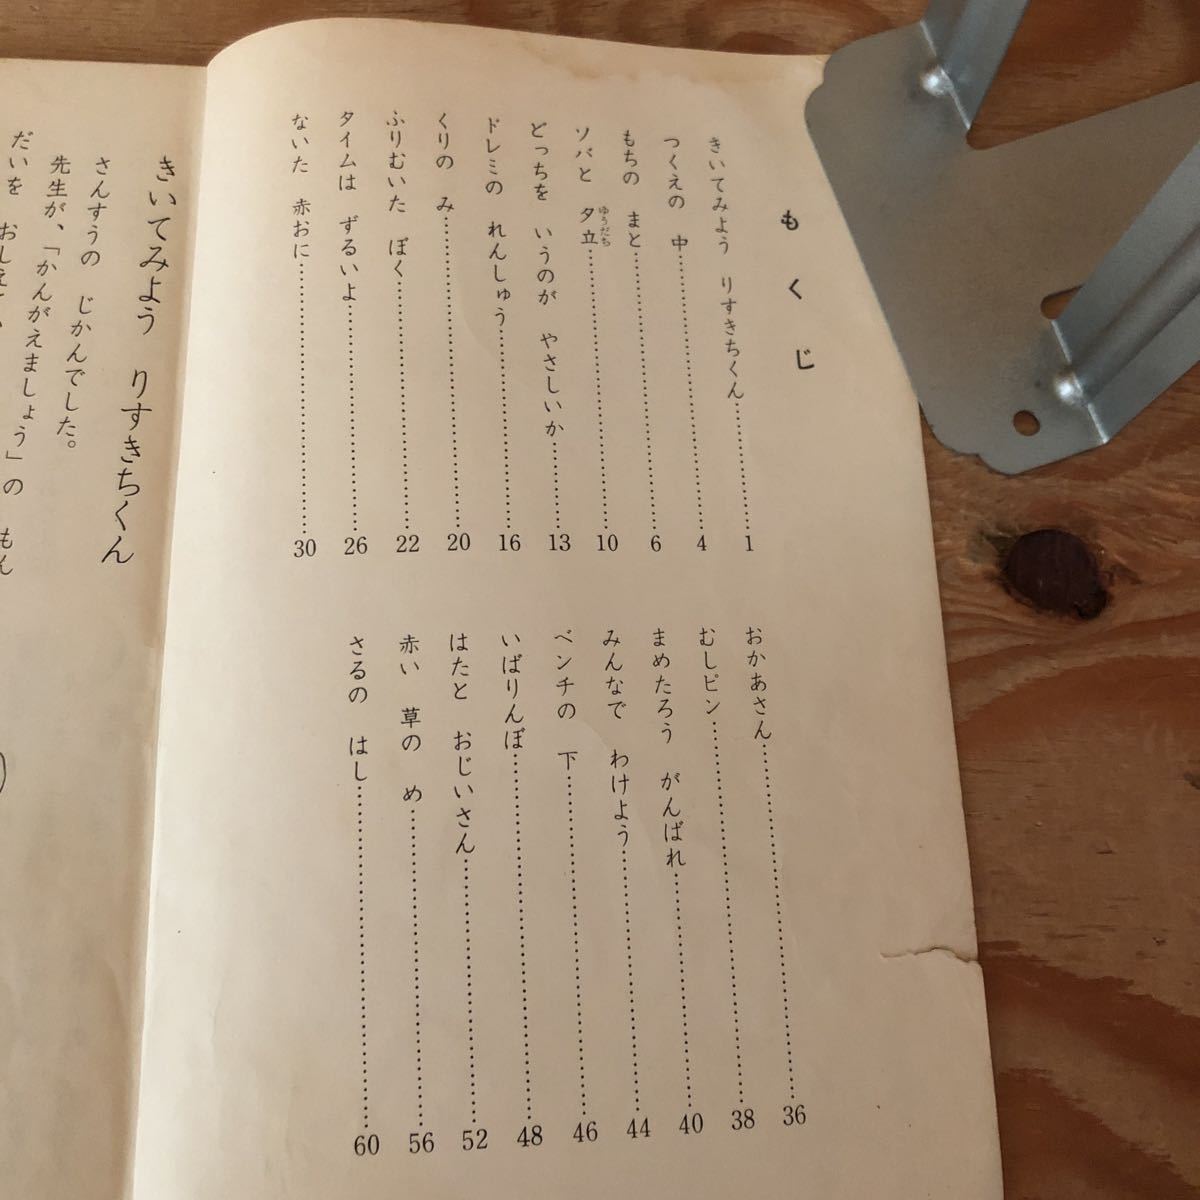 もくじ
きいてみよう りすきちくん……1
つくえの 中……4
もちの まと……6
ソバと 夕立……10
ゆうだち
どっちを いうのが やさしいか……13
ドレミの れんしゅう……16
くりの み……20
ふりむいた ぼく……22
タイムは ずるいよ……26
ないた 赤おに……30
おかあさん……36
むしピン……38
まめたろう がんばれ……40
みんなで わけよう……44
ベンチの 下……46
いばりんぼ……48
はたと おじいさん……52
赤い 草の め……56
さるの はし……60
きいてみよう りすきちくん
さんすうの じかんでした。
先生が、「かんがえましょう」の もん
だいを